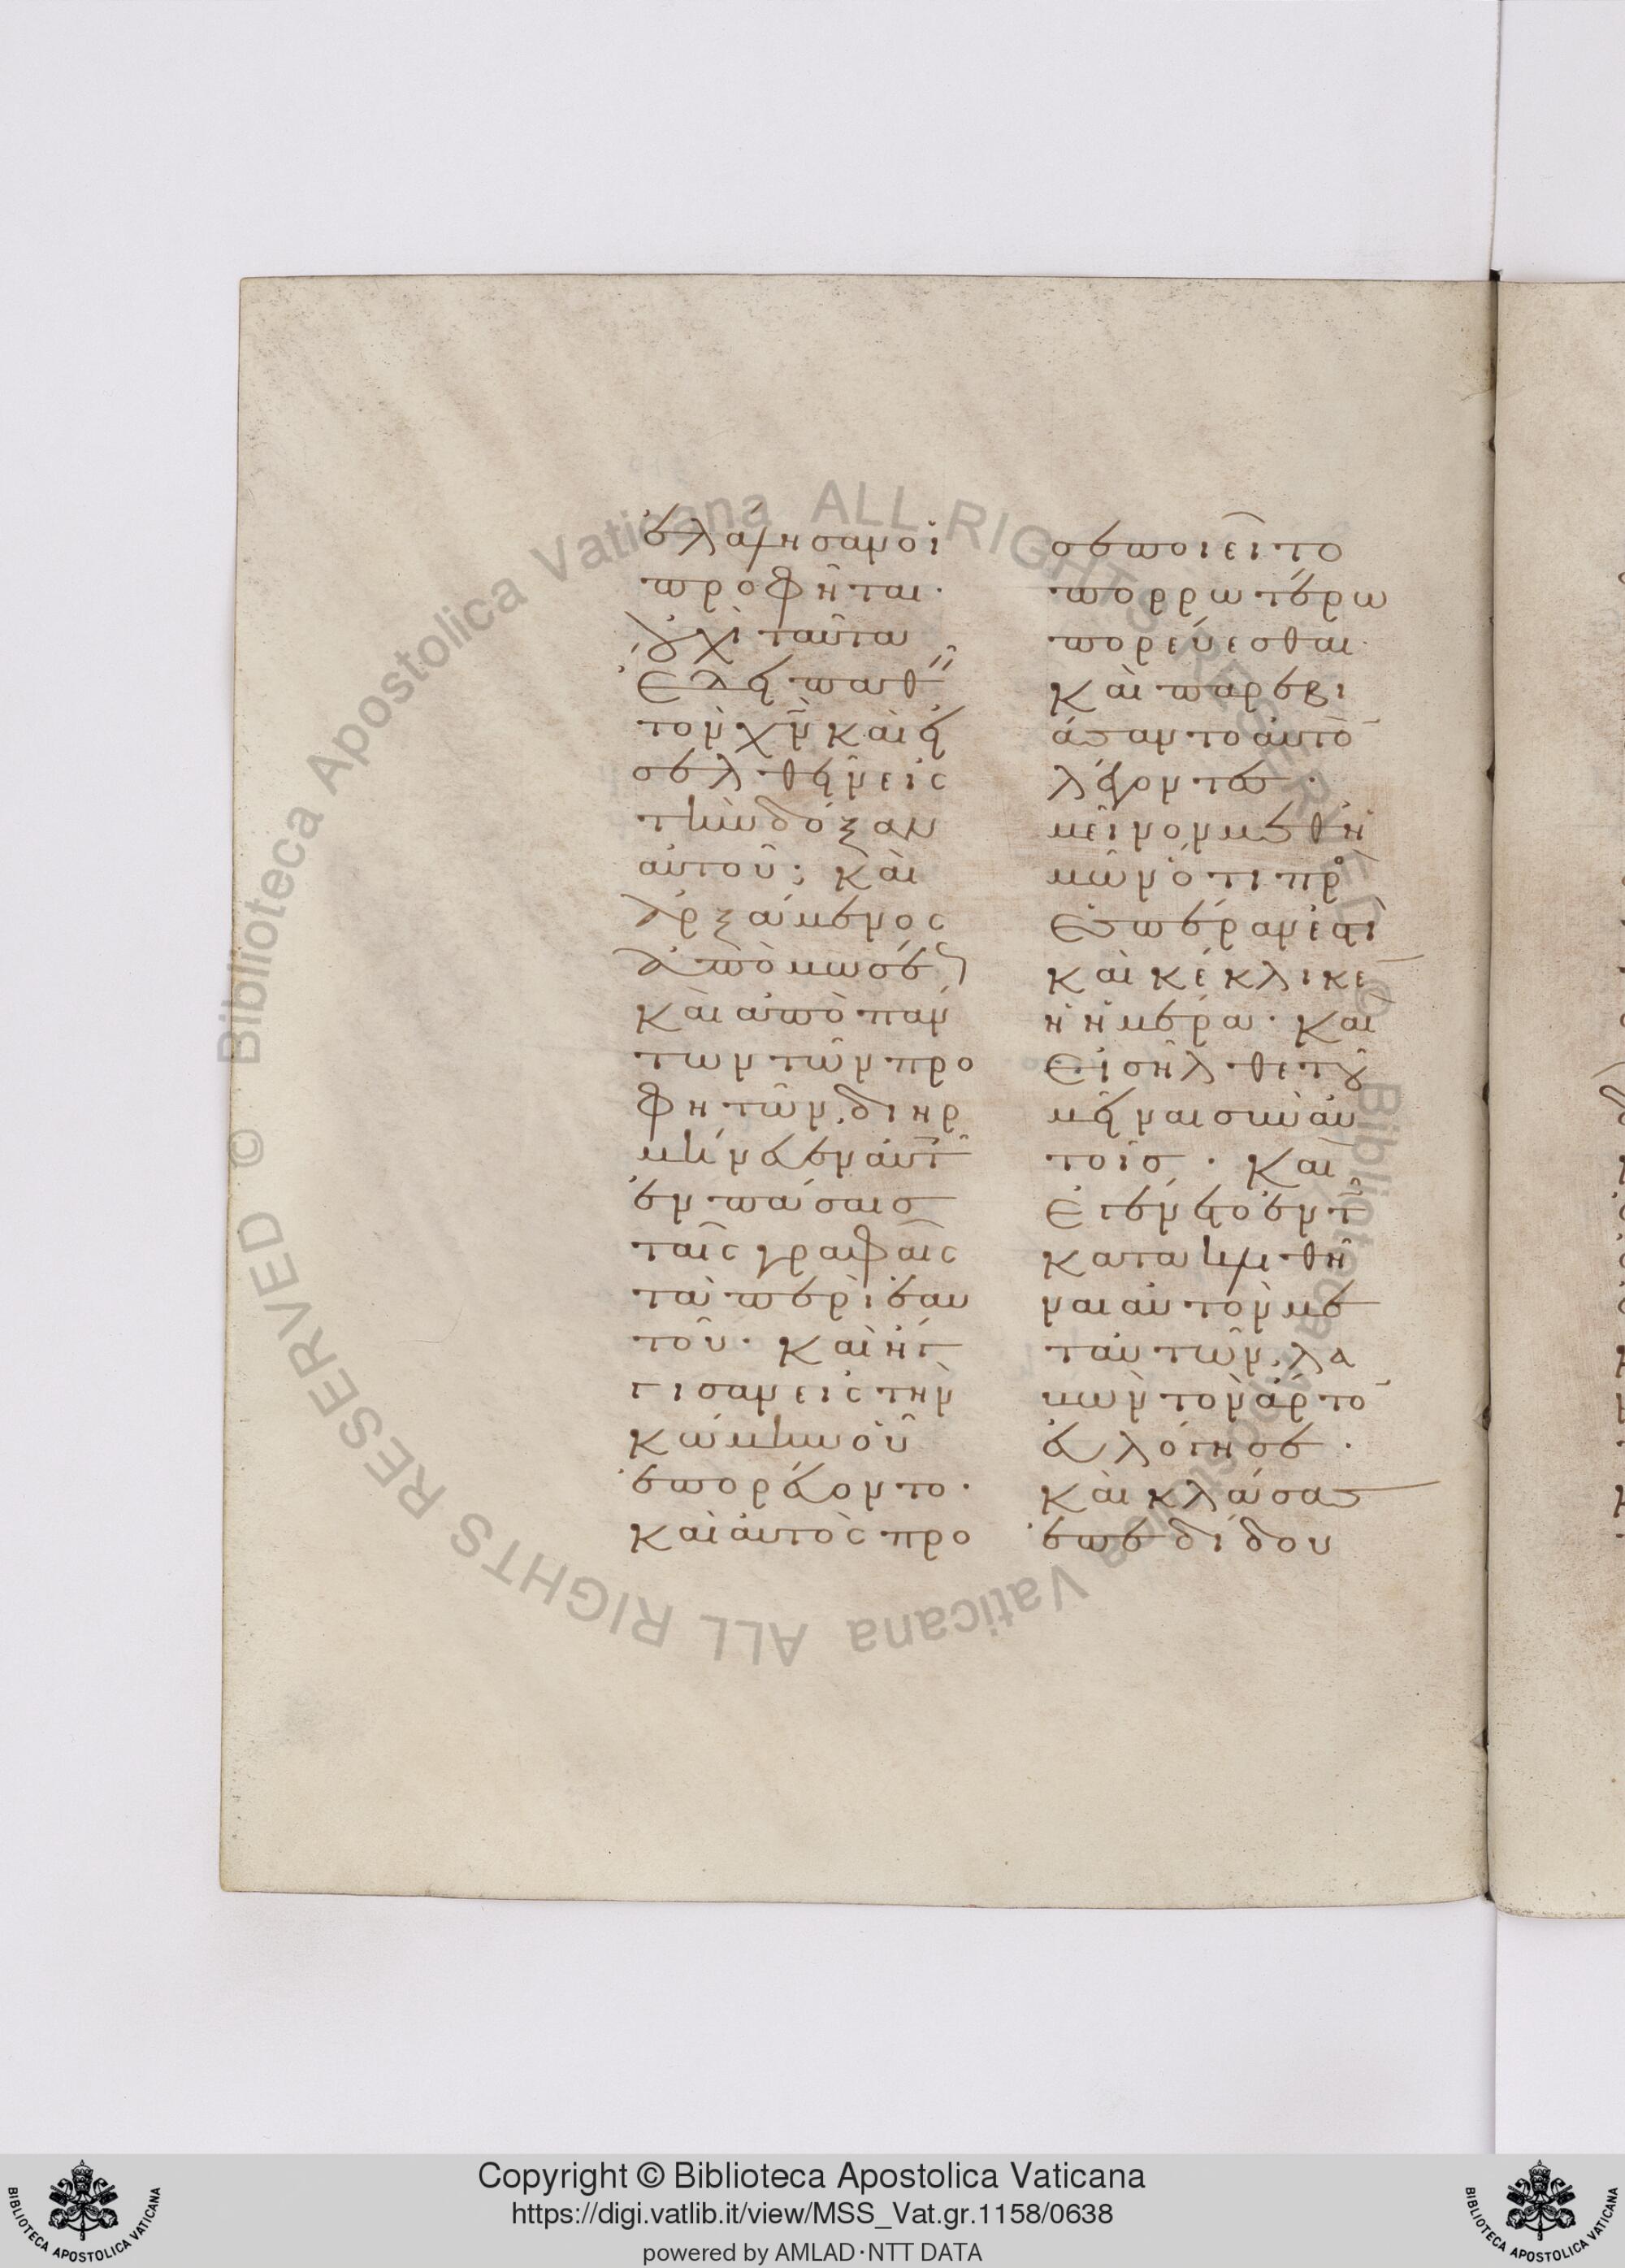 ἐλάλησαν οἱ
προφῆται·
οὐχὶ ταῦτα
ἔδει παθεῖν
τὸν χν καὶ εἰ
σελθεῖν εἰς
τὴν δόξαν
αὐτοῦ; καὶ
ἀρξάμενος
ἀπὸ μωσέως
καὶ ἀπὸ πάν
των τῶν προ
φητῶν, διηρ
μήνευεν αὐτοῖς
ἐν πάσαις
ταῖς γραφαῖς
τὰ περὶ ἑαυ
τοῦ· καὶ ἤγ
γισαν εἰς τὴν
κώμην οὗ
ἐπορεύοντο·
καὶ αὐτὸς προ
σεποιεῖτο
πορρωτέρω
πορεύεσθαι·
καὶ παρεβι
άσαντο αὐτὸν
λέγοντες·
μεῖνον μεθ ἡ
μῶν ὅτι πρὸς
ἑσπέραν ἐστὶ
καὶ κέκλικεν
ἡ ἡμέρα· καὶ
εἰσῆλθε τοῦ
μεῖναι σὺν αὐ
τοῖς· καὶ
ἐγένετο ἐν τῶ
κατακλιθῆ
ναι αὐτὸν με
τ αὐτῶν, λα
βὼν τὸν ἄρτον
εὐλόγησε·
καὶ κλάσας
ἐπεδίδου
Copyright © Biblioteca Apostolica Vaticana
https://digi.vatlib.it/view/MSS_Vat.gr.1158/0638
powered by AMLAD·NTT DATA
BIBLIOTECA APOSTOLICA VATICANA
BIBLIOTECA APOSTOLICA VATICANA
© Biblioteca Apostolica Vaticana ALL RIGHTS RESERVED
© Biblioteca Apostolica Vaticana ALL RIGHTS RESERVED